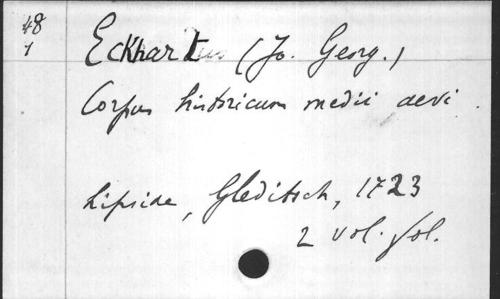 48
1
Eckhart (Jo. Georg.)
Corpus historicum medii aevi.
Lipsiae, Gleditsch, 1723
2 vol. fol.